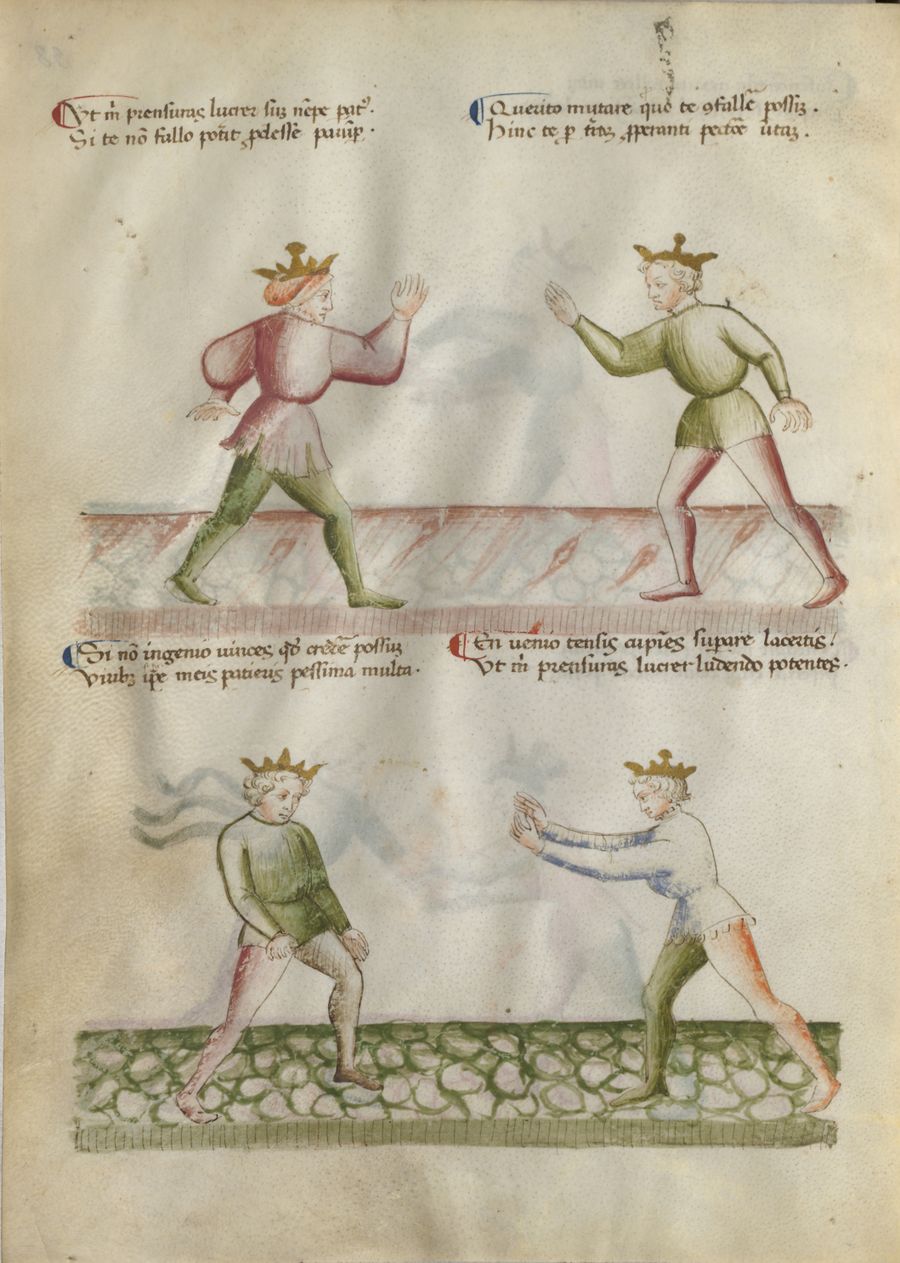 Ut m̄ prensuras lucrer sū nēpe pat᷑.
Si te nō fallo pot̄it ꝓdesse
Querito mutare quo te ꝯfalle᷑ possū.
Hinc te ꝑ ꝓperanti
Si nō ingenio uinces qd̕ crede᷑ possū
Virib; ip̄e meis patieris pessima multa.
En uenio tensis cupiēs suꝑare lacertis.
Vt m̄ prensuras lucrer ludendo potentes.